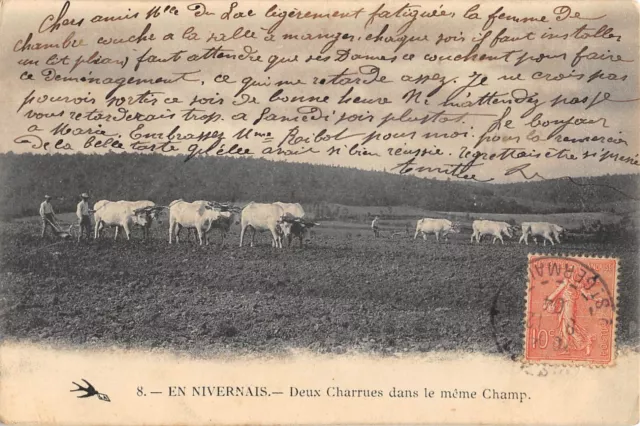 Chers amis Mlle Du Lac légèrement fatiguée, la femme de
chambre couche a la salle a manger, chaque soir il faut installer
un lit pliant, faut attendre que ses Dames ce couchent pour faire
ce déménagement, ce qui me retarde assez. Je ne crois pas
pouvoir sortir ce soir de bonne heure Ne m'attendez pas je
vous retarderais trop. a Samedi soir plustot. Le bonjour
a Marie. Embrassez Mme Raibot pour moi, pour la remercier
de la belle tarte qu'elle avait si bien réussie. Regrettais être si pressée
10c
ST GERMAIN
8. — EN NIVERNAIS. — Deux Charrues dans le même Champ.